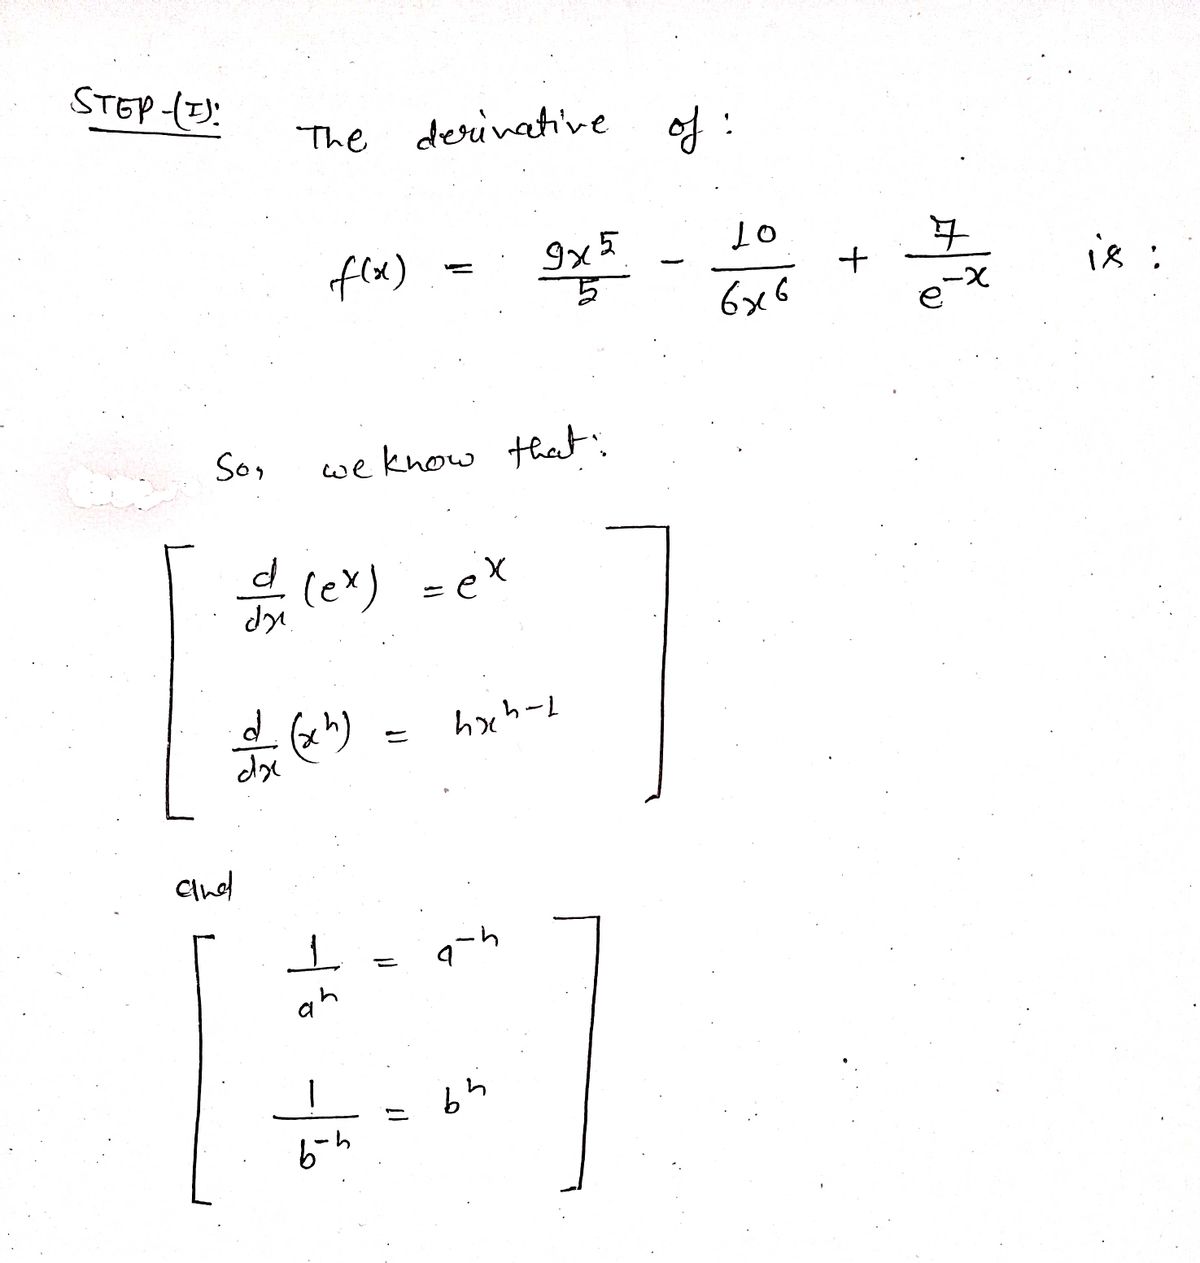 STEP-(I):
The derivative of :
f(x) = 9x^5/5 - 10/6x^6 + 7/e^-x is :
So, we know that:
d/dx (e^x) = e^x
d/dx (x^n) = nx^n-1
and
1/a^n = a^-n
1/b^-n = b^n